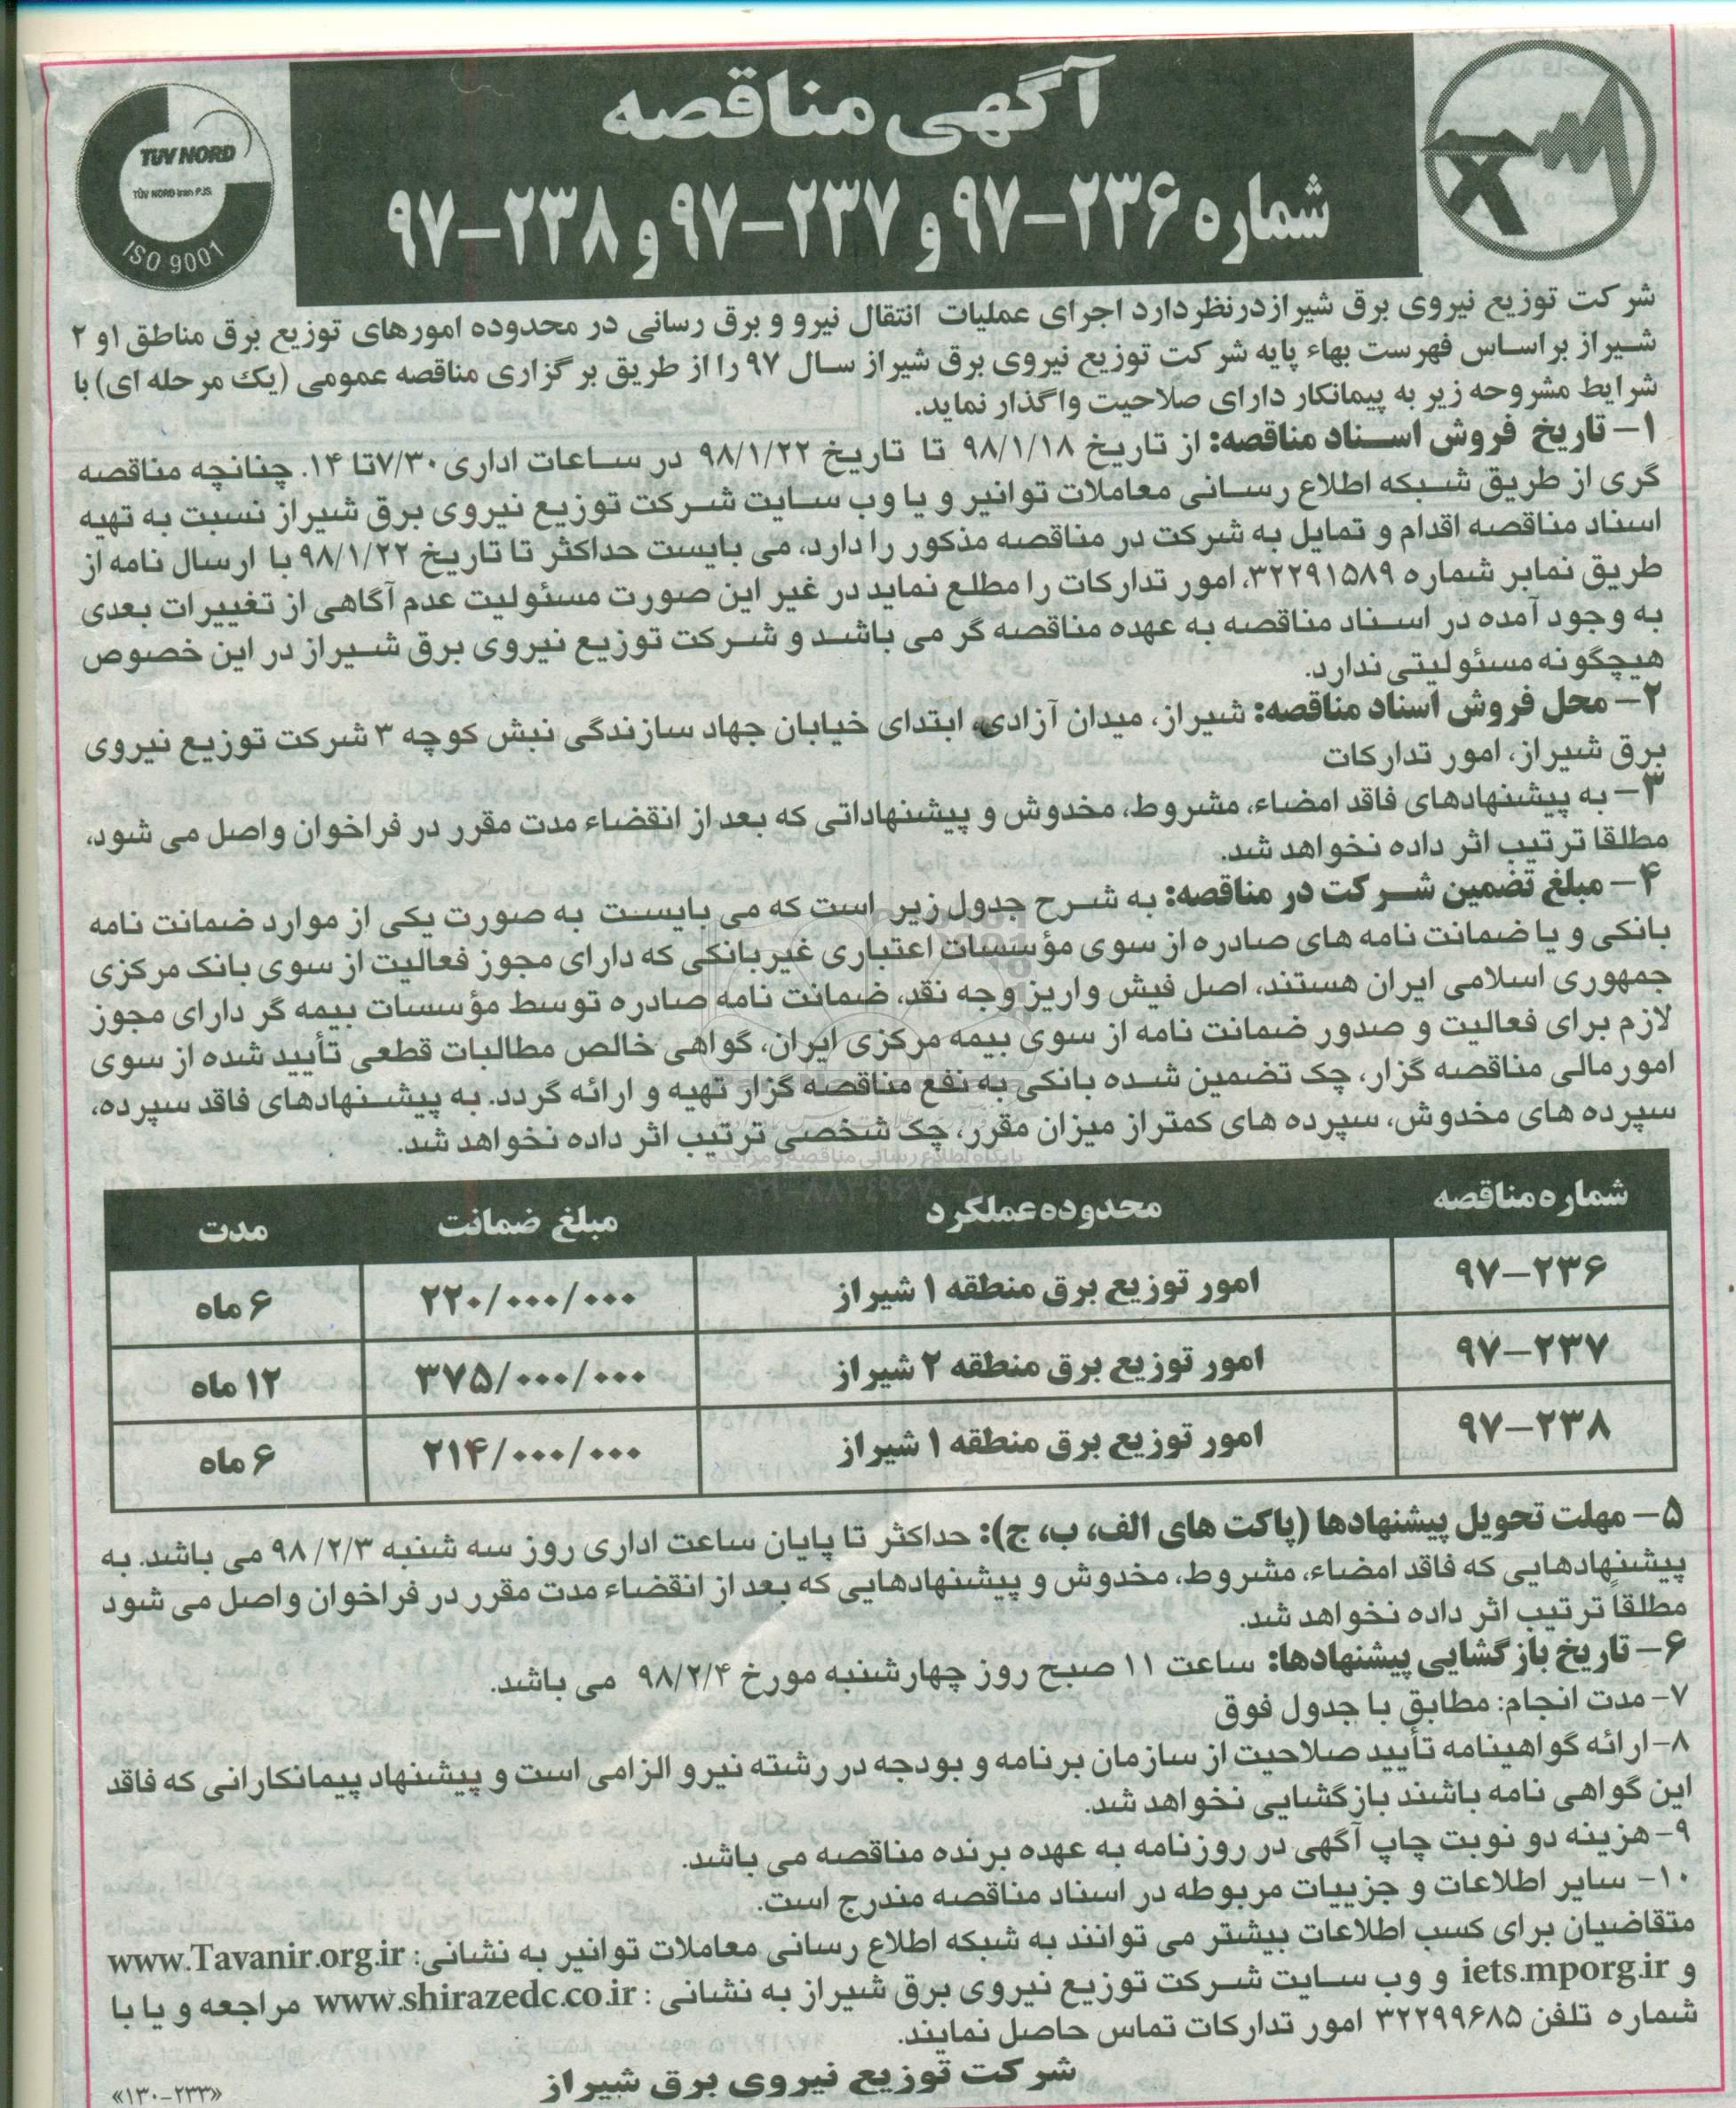 آگهی مناقصه
شماره ۲۳۶-۹۷ و ۲۳۷-۹۷ و ۲۳۸-۹۷
TUV NORD
TÜV NORD Iran P.J.S.
ISO 9001
شرکت توزیع نیروی برق شیراز درنظر دارد اجرای عملیات انتقال نیرو و برق رسانی در محدوده امورهای توزیع برق مناطق ۱ و ۲
شیراز براساس فهرست بهاء پایه شرکت توزیع نیروی برق شیراز سال ۹۷ را از طریق برگزاری مناقصه عمومی (یک مرحله ای) با
شرایط مشروحه زیر به پیمانکار دارای صلاحیت واگذار نماید.
۱- تاریخ فروش اسناد مناقصه: از تاریخ ۹۸/۱/۱۸ تا تاریخ ۹۸/۱/۲۲ در ساعات اداری ۷/۳۰ تا ۱۴. چنانچه مناقصه
گری از طریق شبکه اطلاع رسانی معاملات توانیر و یا وب سایت شرکت توزیع نیروی برق شیراز نسبت به تهیه
اسناد مناقصه اقدام و تمایل به شرکت در مناقصه مذکور را دارد، می بایست حداکثر تا تاریخ ۹۸/۱/۲۲ با ارسال نامه از
طریق نمابر شماره ۳۲۲۹۱۵۸۹، امور تدارکات را مطلع نماید در غیر این صورت مسئولیت عدم آگاهی از تغییرات بعدی
به وجود آمده در اسناد مناقصه به عهده مناقصه گر می باشد و شرکت توزیع نیروی برق شیراز در این خصوص
هیچگونه مسئولیتی ندارد.
۲- محل فروش اسناد مناقصه: شیراز، میدان آزادی، ابتدای خیابان جهاد سازندگی نبش کوچه ۳ شرکت توزیع نیروی
برق شیراز، امور تدارکات
۳- به پیشنهادهای فاقد امضاء، مشروط، مخدوش و پیشنهاداتی که بعد از انقضاء مدت مقرر در فراخوان واصل می شود،
مطلقا ترتیب اثر داده نخواهد شد.
۴- مبلغ تضمین شرکت در مناقصه: به شرح جدول زیر است که می بایست به صورت یکی از موارد ضمانت نامه
بانکی و یا ضمانت نامه های صادره از سوی مؤسسات اعتباری غیربانکی که دارای مجوز فعالیت از سوی بانک مرکزی
جمهوری اسلامی ایران هستند، اصل فیش واریز وجه نقد، ضمانت نامه صادره توسط مؤسسات بیمه گر دارای مجوز
لازم برای فعالیت و صدور ضمانت نامه از سوی بیمه مرکزی ایران، گواهی خالص مطالبات قطعی تأیید شده از سوی
امورمالی مناقصه گزار، چک تضمین شده بانکی به نفع مناقصه گزار تهیه و ارائه گردد. به پیشنهادهای فاقد سپرده،
سپرده های مخدوش، سپرده های کمتر از میزان مقرر، چک شخصی ترتیب اثر داده نخواهد شد.
پایگاه اطلاع رسانی مناقصه و مزایده
شماره مناقصه محدوده عملکرد مبلغ ضمانت مدت
۲۳۶-۹۷ امور توزیع برق منطقه ۱ شیراز ۲۲۰/۰۰۰/۰۰۰ ۶ ماه
۲۳۷-۹۷ امور توزیع برق منطقه ۲ شیراز ۳۷۵/۰۰۰/۰۰۰ ۱۲ ماه
۲۳۸-۹۷ امور توزیع برق منطقه ۱ شیراز ۲۱۴/۰۰۰/۰۰۰ ۶ ماه
۵- مهلت تحویل پیشنهادها (پاکت های الف، ب، ج): حداکثر تا پایان ساعت اداری روز سه شنبه ۹۸/۲/۳ می باشد. به
پیشنهادهایی که فاقد امضاء، مشروط، مخدوش و پیشنهادهایی که بعد از انقضاء مدت مقرر در فراخوان واصل می شود
مطلقاً ترتیب اثر داده نخواهد شد.
۶- تاریخ بازگشایی پیشنهادها: ساعت ۱۱ صبح روز چهارشنبه مورخ ۹۸/۲/۴ می باشد.
۷- مدت انجام: مطابق با جدول فوق
۸- ارائه گواهینامه تأیید صلاحیت از سازمان برنامه و بودجه در رشته نیرو الزامی است و پیشنهاد پیمانکارانی که فاقد
این گواهی نامه باشند بازگشایی نخواهد شد.
۹- هزینه دو نوبت چاپ آگهی در روزنامه به عهده برنده مناقصه می باشد.
۱۰- سایر اطلاعات و جزییات مربوطه در اسناد مناقصه مندرج است.
متقاضیان برای کسب اطلاعات بیشتر می توانند به شبکه اطلاع رسانی معاملات توانیر به نشانی: www.Tavanir.org.ir
و iets.mporg.ir و وب سایت شرکت توزیع نیروی برق شیراز به نشانی : www.shirazedc.co.ir مراجعه و یا با
شماره تلفن ۳۲۲۹۹۶۸۵ امور تدارکات تماس حاصل نمایند.
شرکت توزیع نیروی برق شیراز
«۱۳۰-۲۳۳»